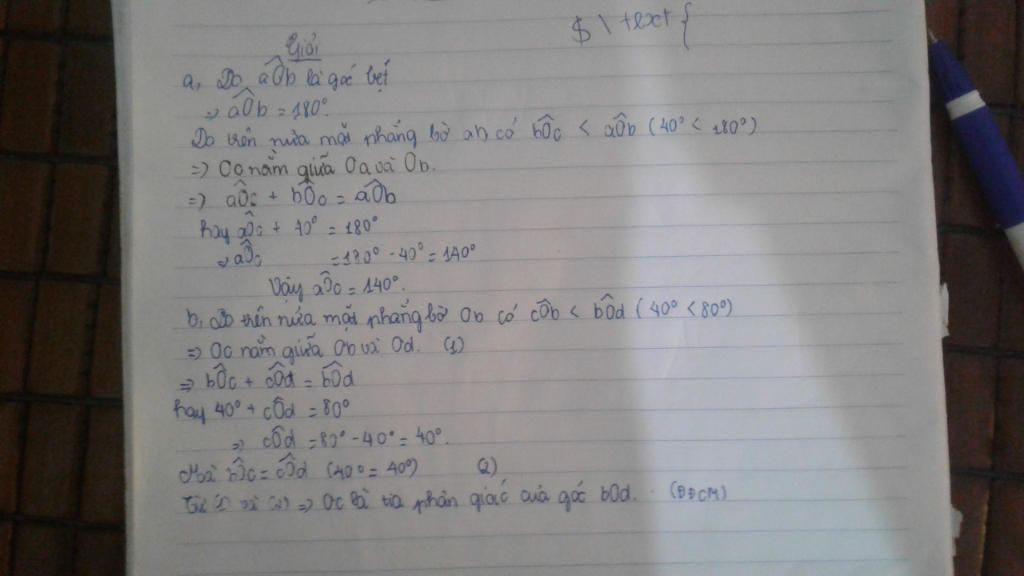 $ \ text {
Giải
a, Do aÔb là góc bẹt
=> aÔb = 180°.
Do trên nửa mặt phẳng bờ ab có bÔc < aÔb (40° < 180°)
=> Oc nằm giữa Oa và Ob.
=> aÔc + bÔc = aÔb
hay aÔc + 40° = 180°
=> aÔc = 180° - 40° = 140°
Vậy aÔc = 140°.
b, Do trên nửa mặt phẳng bờ Ob có cÔb < bÔd (40° < 80°)
=> Oc nằm giữa Ob và Od. (1)
=> bÔc + cÔd = bÔd
hay 40° + cÔd = 80°
=> cÔd = 80° - 40° = 40°.
Mà bÔc = cÔd (40° = 40°) (2)
Từ (1) và (2) => Oc là tia phân giác của góc bOd. (ĐPCM)